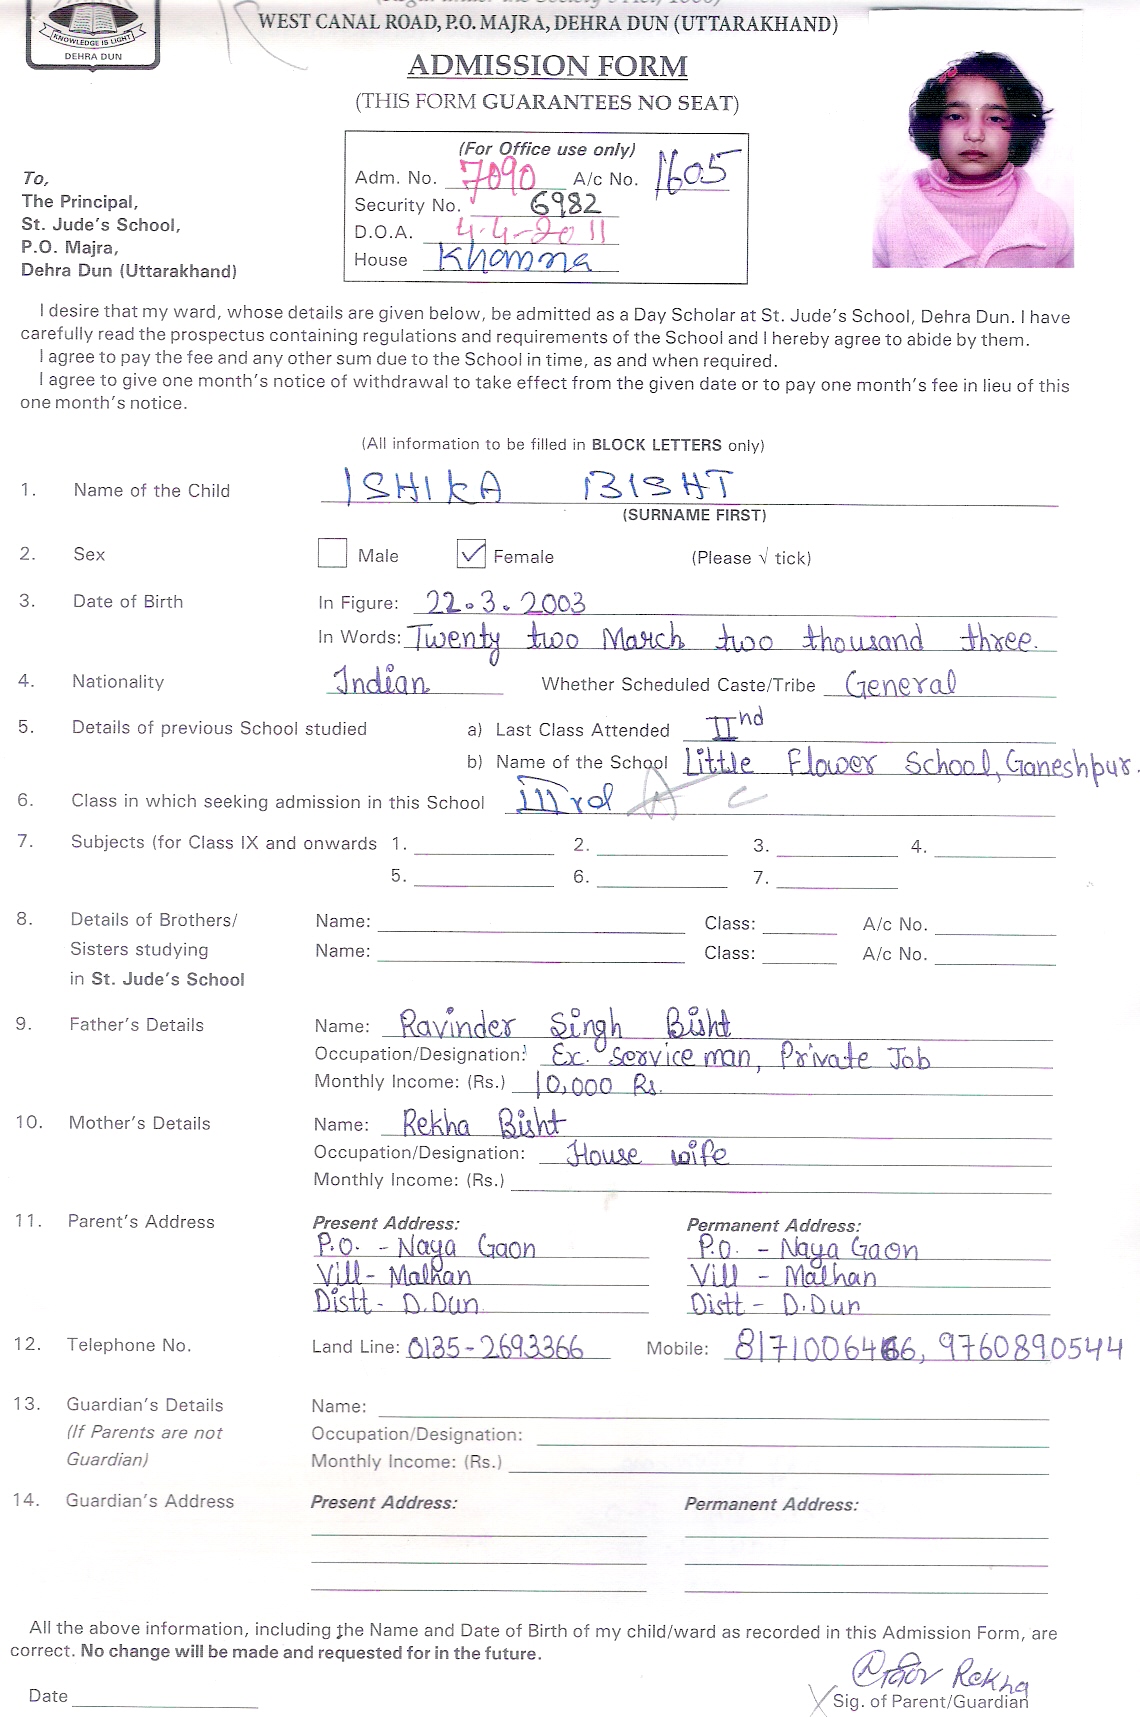 KNOWLEDGE IS LIGHT
DEHRA DUN
WEST CANAL ROAD, P.O. MAJRA, DEHRA DUN (UTTARAKHAND)
ADMISSION FORM
(THIS FORM GUARANTEES NO SEAT)
(For Office use only)
Adm. No. 7090 A/c No. 1605
Security No. 6982
D.O.A. 4-4-2011
House Khanna
To,
The Principal,
St. Jude's School,
P.O. Majra,
Dehra Dun (Uttarakhand)
I desire that my ward, whose details are given below, be admitted as a Day Scholar at St. Jude's School, Dehra Dun. I have
carefully read the prospectus containing regulations and requirements of the School and I hereby agree to abide by them.
I agree to pay the fee and any other sum due to the School in time, as and when required.
I agree to give one month's notice of withdrawal to take effect from the given date or to pay one month's fee in lieu of this
one month's notice.
(All information to be filled in BLOCK LETTERS only)
1. Name of the Child ISHIKA BISHT
(SURNAME FIRST)
2. Sex Male Female (Please √ tick)
3. Date of Birth In Figure: 22.3.2003
In Words: Twenty two March two thousand three.
4. Nationality Indian Whether Scheduled Caste/Tribe General
5. Details of previous School studied a) Last Class Attended IInd
b) Name of the School Little Flower School, Ganeshpur.
6. Class in which seeking admission in this School IIIrd A C
7. Subjects (for Class IX and onwards 1. 2. 3. 4.
5. 6. 7.
8. Details of Brothers/ Name: Class: A/c No.
Sisters studying Name: Class: A/c No.
in St. Jude's School
9. Father's Details Name: Ravinder Singh Bisht
Occupation/Designation: Ex. Service man, Private Job
Monthly Income: (Rs.) 10,000 Rs.
10. Mother's Details Name: Rekha Bisht
Occupation/Designation: House wife
Monthly Income: (Rs.)
11. Parent's Address Present Address: Permanent Address:
P.O. - Naya Gaon P.O. - Naya Gaon
Vill- Malhan Vill - Malhan
Distt- D.Dun Distt - D.Dun
12. Telephone No. Land Line: 0135-2693366 Mobile: 8171006466, 9760890544
13. Guardian's Details Name:
(If Parents are not Occupation/Designation:
Guardian) Monthly Income: (Rs.)
14. Guardian's Address Present Address: Permanent Address:
All the above information, including the Name and Date of Birth of my child/ward as recorded in this Admission Form, are
correct. No change will be made and requested for in the future.
Rekha
Date Sig. of Parent/Guardian